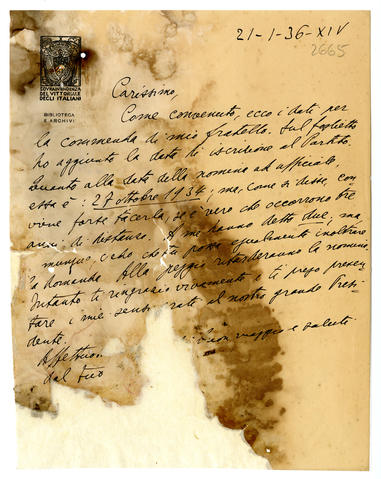 21-1-36-XIV
2665
SOVRAINTENDENZA
DEL VITTORIALE
DEGLI ITALIANI
BIBLIOTECA
E ARCHIVI
Carissimo,
Come convenuto, ecco i dati per
la commenda di mio fratello. Sul foglietto
ho aggiunto la data di iscrizione al Partito.
Quanto alla data della nomina ad ufficiale,
essa è: 27 ottobre 1934; ma, come si disse, con
viene forse tacerla, se è vero che occorrono tre
anni di distanza. A me hanno detto due; ma
munque, credo che tu possa egualmente inoltrare
la domanda. Alla peggio ritarderanno la nomina.
Intanto ti ringrazio vivamente e ti prego presen
tare i miei sensi grati al nostro grande Presi
dente.
Buon viaggio e saluti
Affettuosi
dal tuo